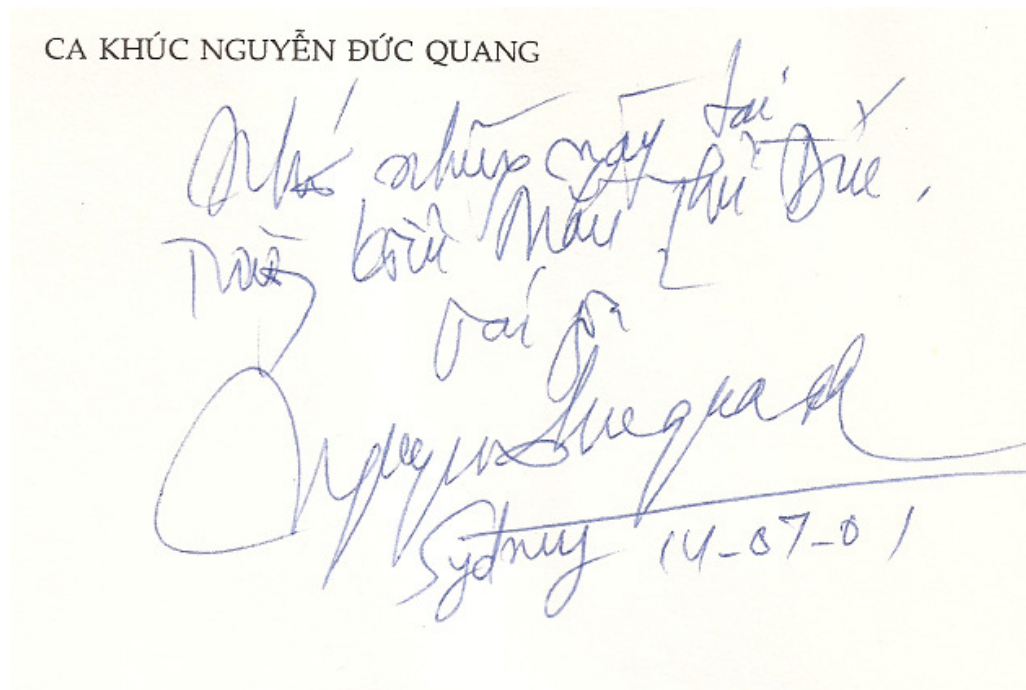 CA KHÚC NGUYỄN ĐỨC QUANG
Nhớ những ngày tại
Trường Kiểu Mẫu Thủ Đức,
Nguyenducquang
Sydney 14-07-01